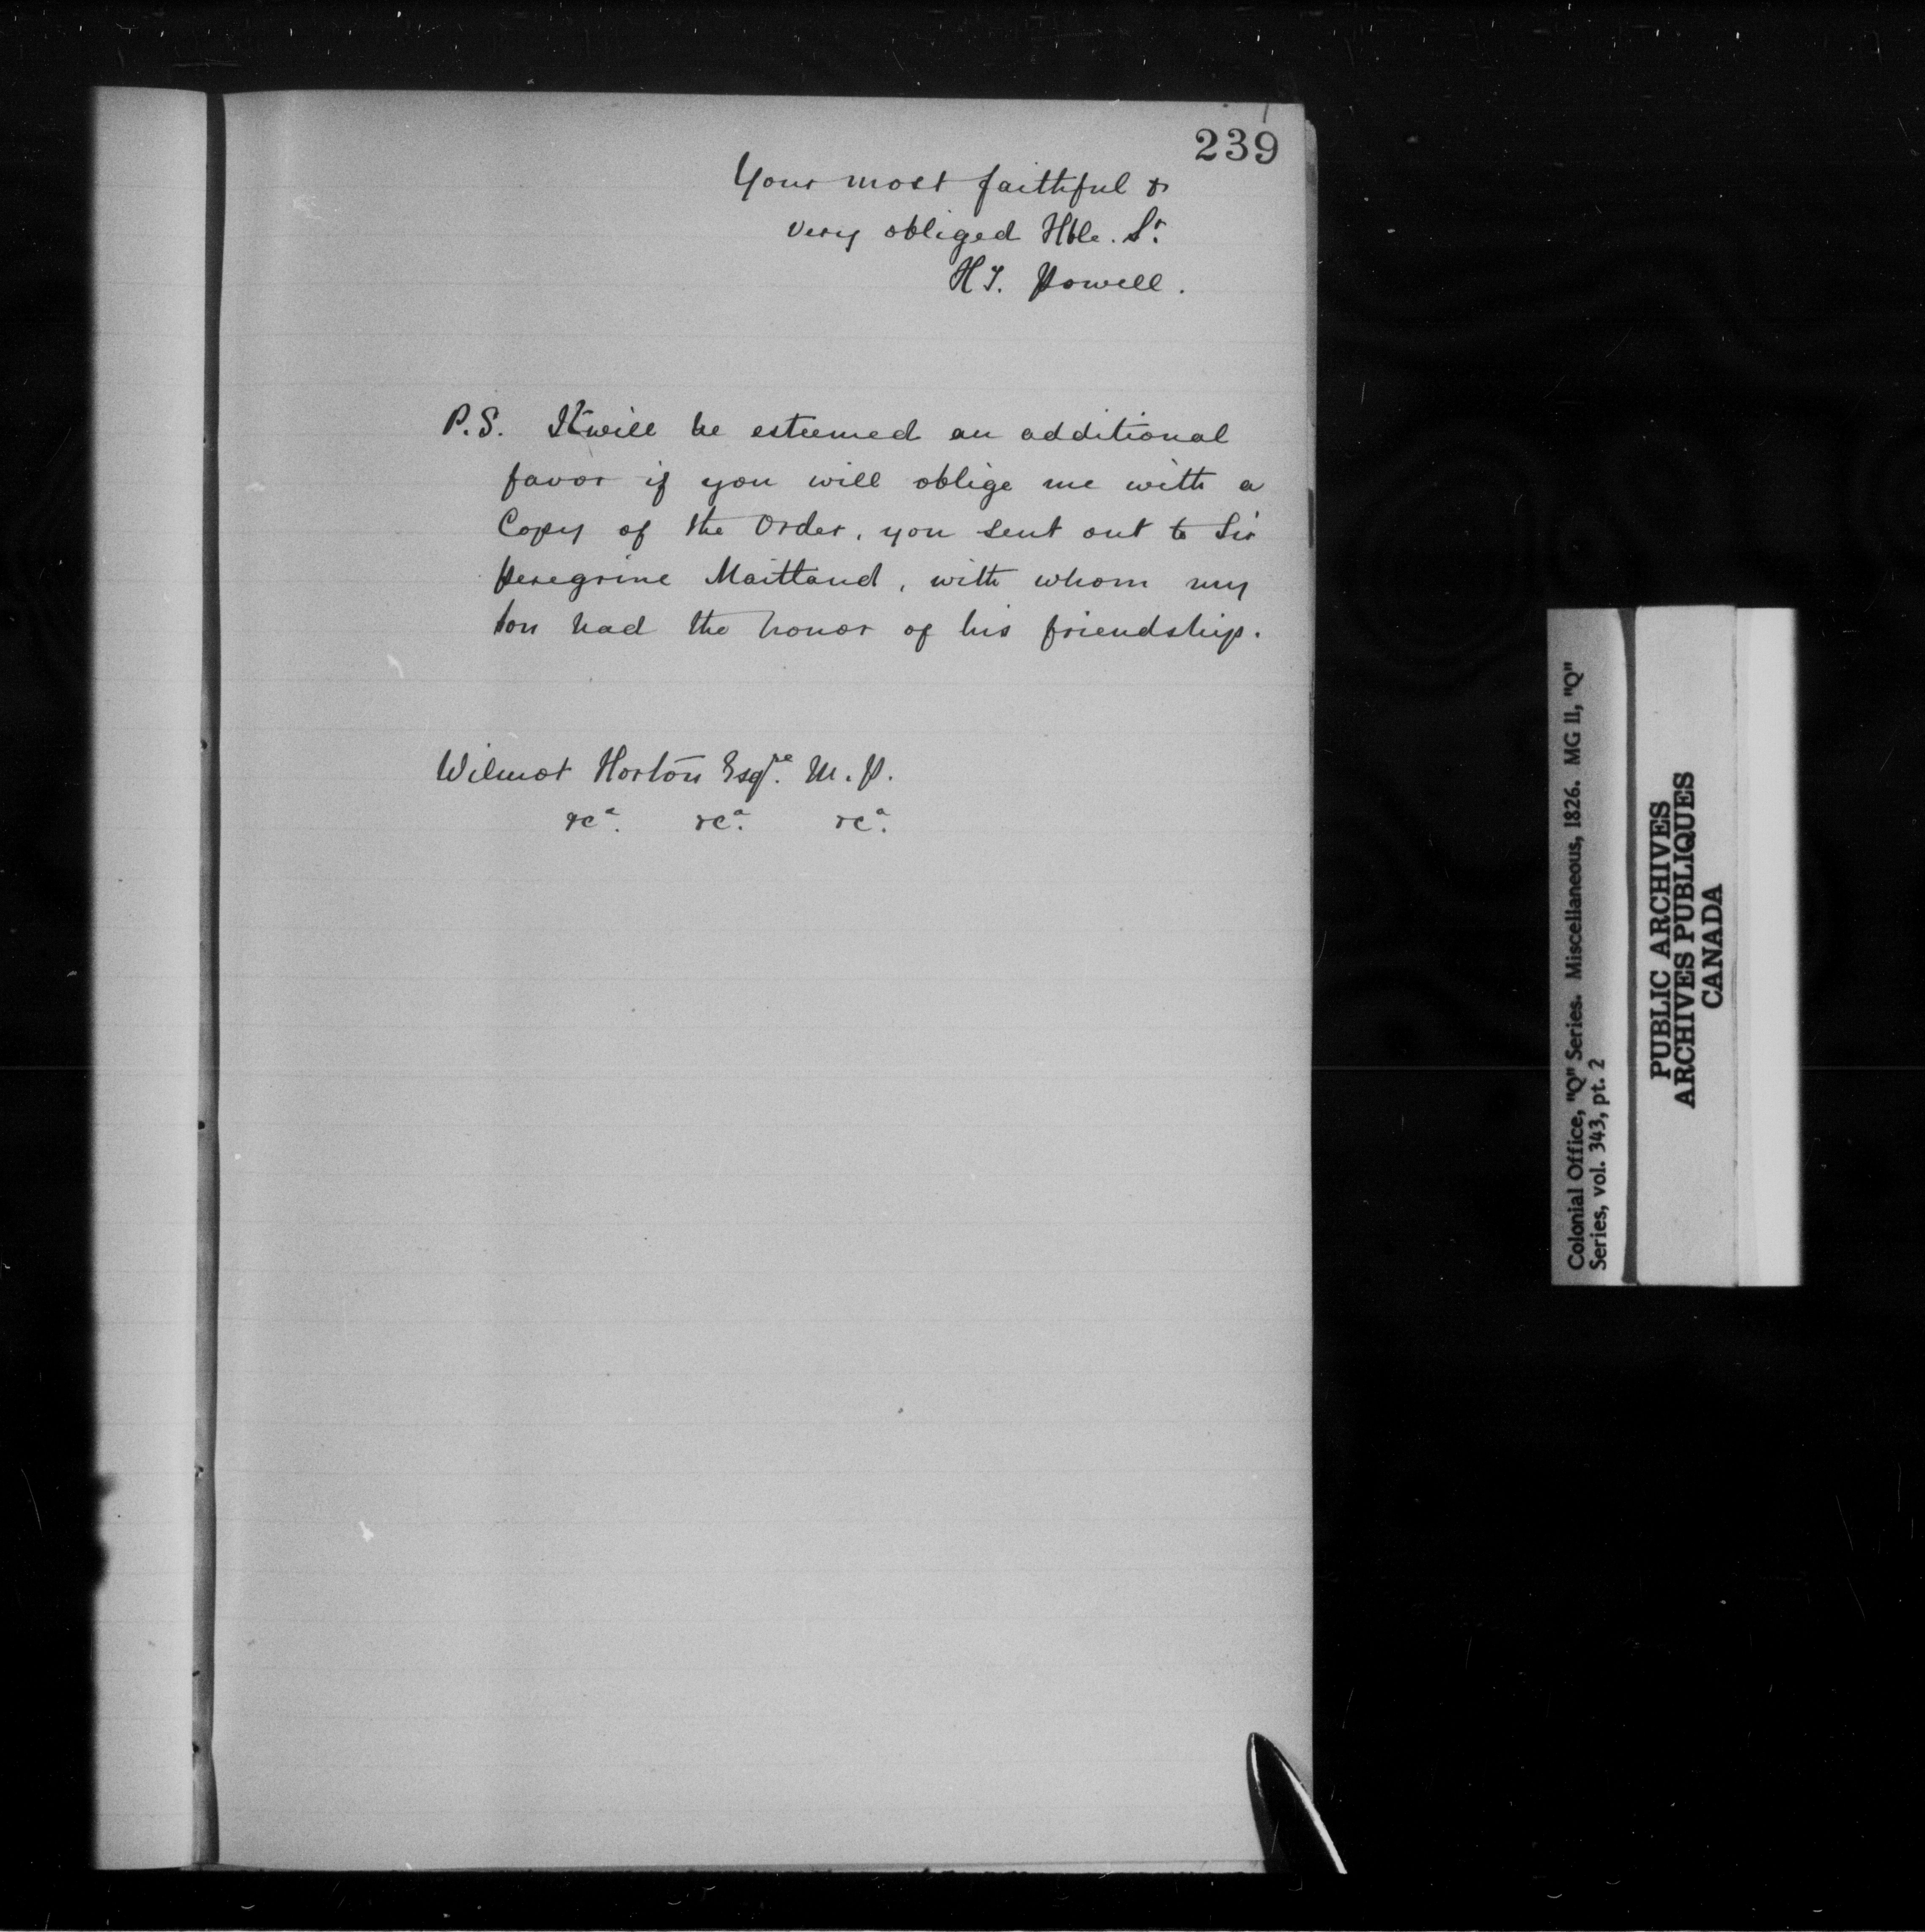 239
Your most faithful &
very obliged Hble. Sr.
H T. Powell.
P.S. It will be esteemed an additional
favor if you will oblige me with a
Copy of the Order, you sent out to Sir
Peregrine Maitland, with whom my
son had the honor of his friendship.
Wilmot Horton Esqre. M.P.
&ca. &ca. &ca.
Colonial Office, "Q" Series. Miscellaneous, 1826. MG 11, "Q"
Series, vol. 343, pt. 2
PUBLIC ARCHIVES
ARCHIVES PUBLIQUES
CANADA